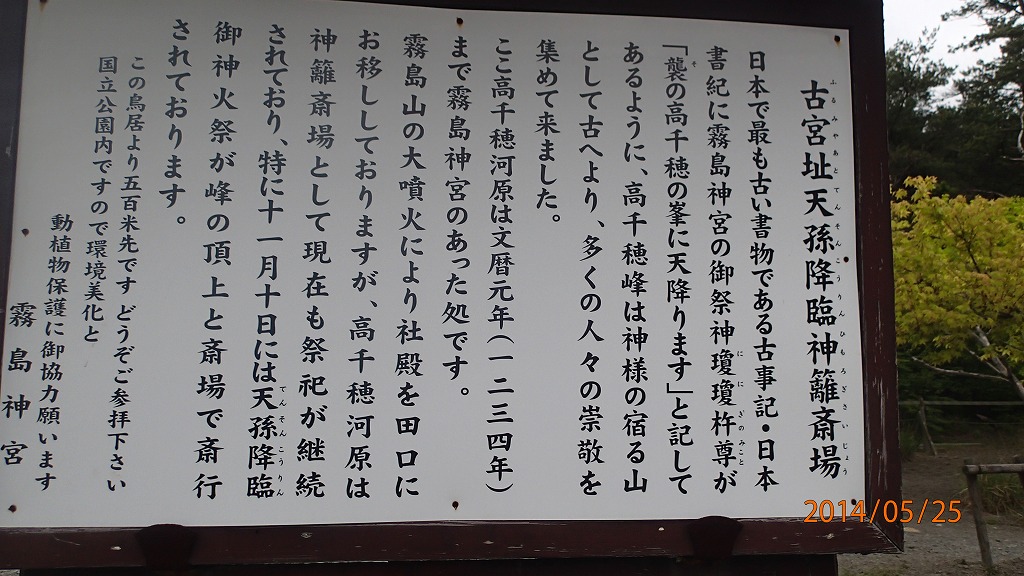 古宮址天孫降臨神籬斎場
ふるみやあとてんそんこうりんひもろぎさいじょう
日本で最も古い書物である古事記・日本
書紀に霧島神宮の御祭神瓊瓊杵尊が
ににぎのみこと
「襲の高千穂の峯に天降ります」と記して
そ
あるように、高千穂峰は神様の宿る山
として古へより、多くの人々の崇敬を
集めて来ました。
ここ高千穂河原は文暦元年(一二三四年)
まで霧島神宮のあった処です。
霧島山の大噴火により社殿を田口に
お移ししておりますが、高千穂河原は
神籬斎場として現在も祭祀が継続
されており、特に十一月十日には天孫降臨
てんそんこうりん
御神火祭が峰の頂上と斎場で斎行
されております。
この鳥居より五百米先です どうぞご参拝下さい
国立公園内ですので環境美化と
動植物保護に御協力願います
霧島神宮
2014/05/25